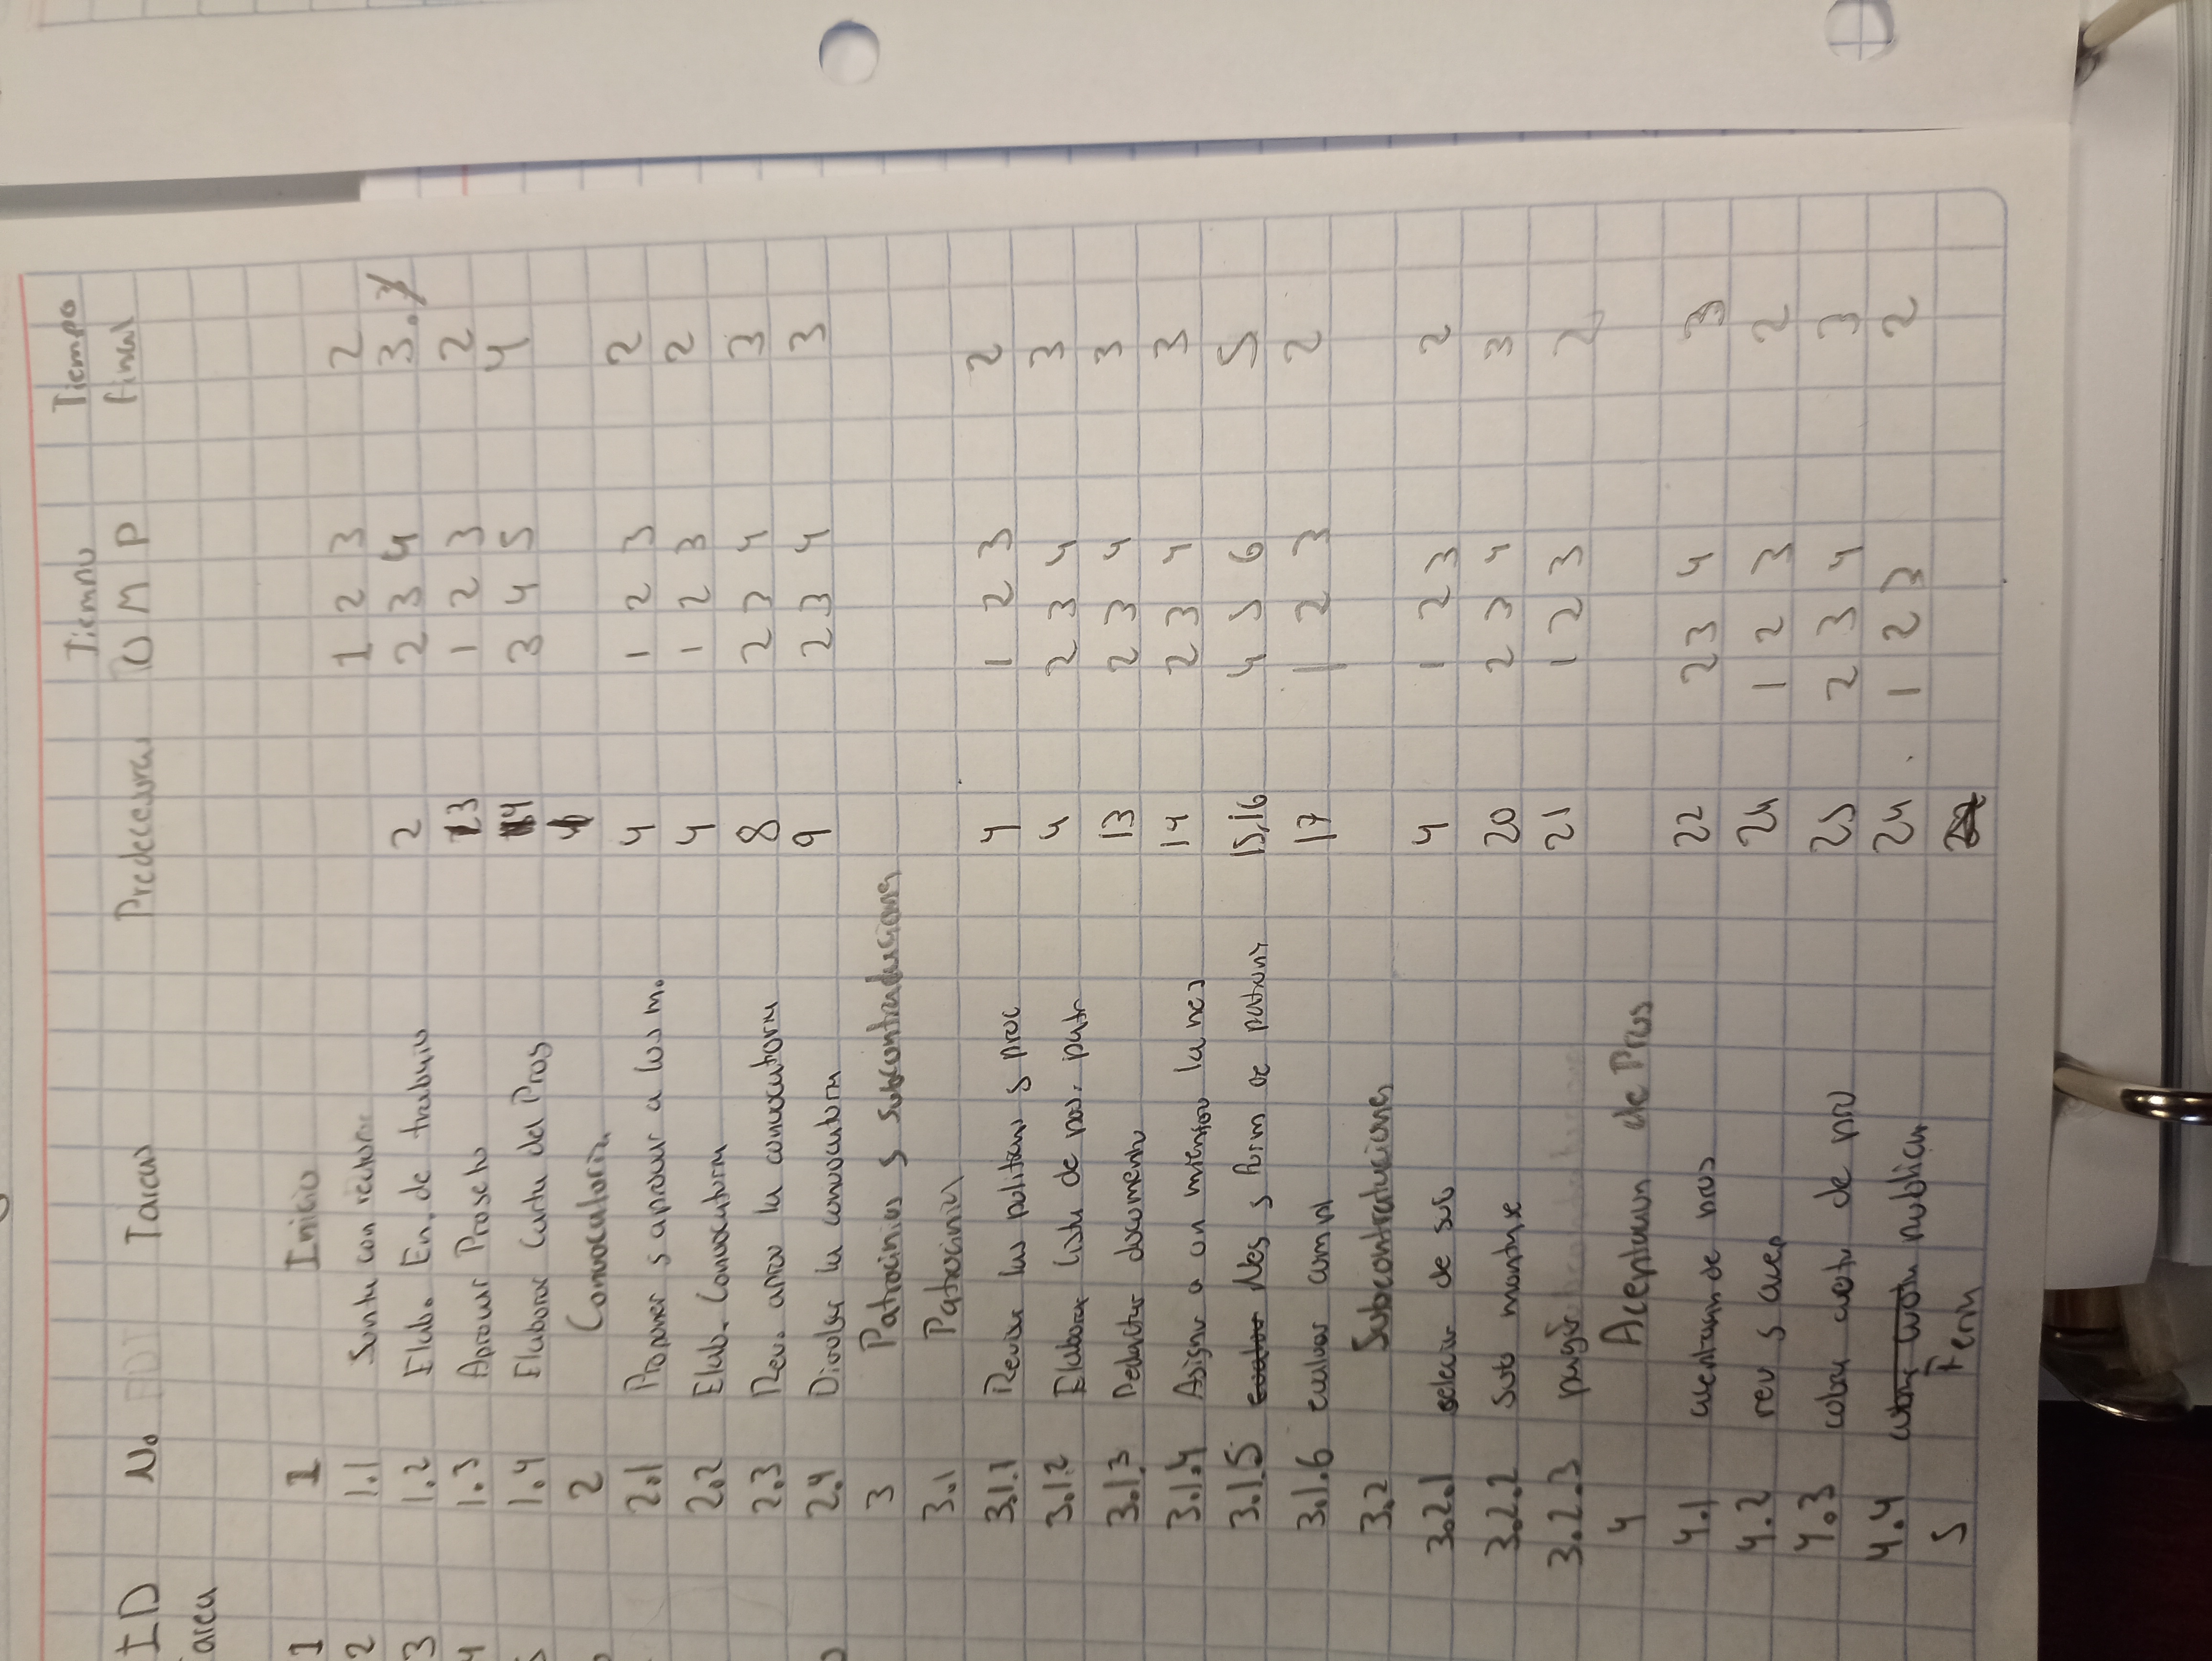 Tiempo Tiempo
ID No Tareas Predecesoras O M P final
area
1 1 Inicio
2 1.1 Junta con rector 1 2 3 2
3 1.2 Elab. En. de trabajo 2 2 3 4 3.
4 1.3 Aprovar Proyecto 3 1 2 3 2
5 1.4 Elaborar Carta del Proy 4 3 4 5 4
2 Convocatoria
2.1 Proponer y aprovar a los m. 4 1 2 3 2
2.2 Elab. Convocatoria 4 1 2 3 2
2.3 Rev. aprov la convocatoria 8 2 3 4 3
2.4 Divulgar la convocatoria 9 2 3 4 3
3 Patrocinios y subcontrataciones
3.1 Patrocinios
3.1.1 Revisar las politicas y proc 4 1 2 3 2
3.1.2 Elaborar lista de pos. patr 4 2 3 4 3
3.1.3 Redactar documento 13 2 3 4 3
3.1.4 Asignar a un miembro la neg 14 2 3 4 3
3.1.5 Neg y form de patroni 15,16 4 5 6 5
3.1.6 evaluar compl 17 1 2 3 2
3.2 Subcontrataciones
3.2.1 de sub 4 1 2 3 2
3.2.2 Sub montaje 20 2 3 4 3
3.2.3 pagar 21 1 2 3 2
4 Aceptacion de Proy
4.1 aceptacion de proy 22 2 3 4 3
4.2 rev y acep 24 1 2 3 2
4.3 cobrar cuota de pro 25 2 3 4 3
4.4 publicar 24 1 2 3 2
5 Feria